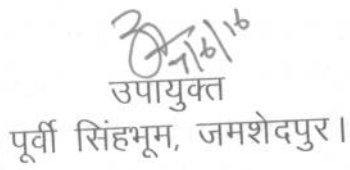 7/6/16
उपायुक्त
पूर्वी सिंहभूम, जमशेदपुर।